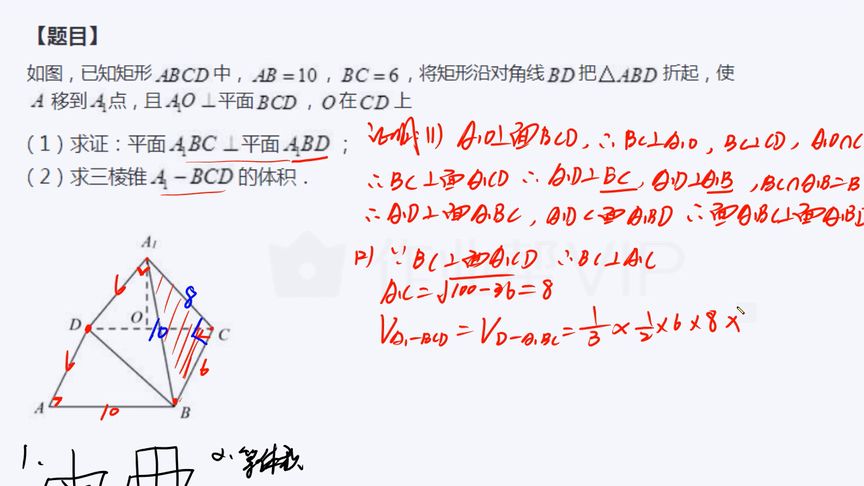 【题目】
如图，已知矩形ABCD中，AB=10，BC=6，将矩形沿对角线BD把△ABD折起，使
A移到A₁点，且A₁O⊥平面BCD，O在CD上
（1）求证：平面A₁BC⊥平面A₁BD；
（2）求三棱锥A₁-BCD的体积．
证明:(1) A₁O⊥面BCD, ∴BC⊥A₁O, BC⊥CD, A₁O∩C
∴BC⊥面A₁CD ∴A₁D⊥BC, A₁D⊥A₁B, BC∩A₁B=B
∴A₁D⊥面A₁BC, A₁D⊂面A₁BD ∴面A₁BC⊥面A₁BD
(2) ∵BC⊥面A₁CD ∴BC⊥A₁C
A₁C=√100-36=8
V_{A₁-BCD}=V_{D-A₁BC}=1/3×1/2×6×8×
A₁
6
8
D
O
10
C
6
6
A
10
B
1.
2.等体积